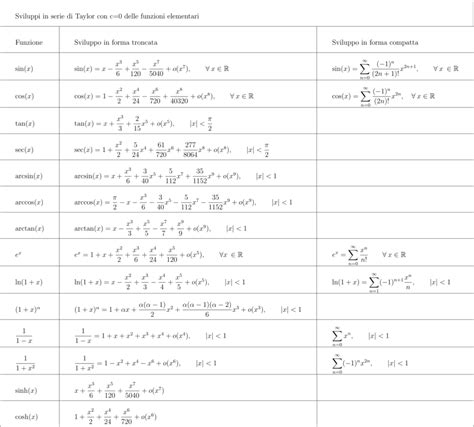 Sviluppi in serie di Taylor con c=0 delle funzioni elementari
Funzione Sviluppo in forma troncata Sviluppo in forma compatta
sin(x) sin(x) = x − x³/6 + x⁵/120 − x⁷/5040 + o(x⁷), ∀ x ∈ ℝ sin(x) = ∑_{n=0}^{∞} (−1)ⁿ/(2n+1)! x²ⁿ⁺¹, ∀ x ∈ ℝ
cos(x) cos(x) = 1 − x²/2 + x⁴/24 − x⁶/720 + x⁸/40320 + o(x⁸), ∀ x ∈ ℝ cos(x) = ∑_{n=0}^{∞} (−1)ⁿ/(2n)! x²ⁿ, ∀ x ∈ ℝ
tan(x) tan(x) = x + x³/3 + 2/15 x⁵ + o(x⁵), |x| < π/2
sec(x) sec(x) = 1 + x²/2 + 5/24 x⁴ + 61/720 x⁶ + 277/8064 x⁸ + o(x⁸), |x| < π/2
arcsin(x) arcsin(x) = x + x³/6 + 3/40 x⁵ + 5/112 x⁷ + 35/1152 x⁹ + o(x⁹), |x| < 1
arccos(x) arccos(x) = π/2 − x − x³/6 − 3/40 x⁵ − 5/112 x⁷ − 35/1152 x⁹ + o(x⁹), |x| < 1
arctan(x) arctan(x) = x − x³/3 + x⁵/5 − x⁷/7 + x⁹/9 + o(x⁹), |x| < 1
eˣ eˣ = 1 + x + x²/2 + x³/6 + x⁴/24 + x⁵/120 + o(x⁵), ∀x ∈ ℝ eˣ = ∑_{n=0}^{∞} xⁿ/n! ∀ x ∈ ℝ
ln(1 + x) ln(1 + x) = x − x²/2 + x³/3 − x⁴/4 + x⁵/5 + o(x⁵), |x| < 1 ln(1 + x) = ∑_{n=1}^{∞} (−1)ⁿ⁺¹ xⁿ/n, |x| < 1
(1 + x)^α (1 + x)^α = 1 + αx + α(α − 1)/2 x² + α(α − 1)(α − 2)/6 x³ + o(x³), |x| < 1
1/(1 − x) 1/(1 − x) = 1 + x + x² + x³ + x⁴ + o(x⁴), |x| < 1 ∑_{n=0}^{∞} xⁿ, |x| < 1
1/(1 + x²) 1/(1 + x²) = 1 − x² + x⁴ − x⁶ + o(x⁶), |x| < 1 ∑_{n=0}^{∞} (−1)ⁿx²ⁿ, |x| < 1
sinh(x) x + x³/6 + x⁵/120 + x⁷/5040 + o(x⁷)
cosh(x) 1 + x²/2 + x⁴/24 + x⁶/720 + o(x⁶)